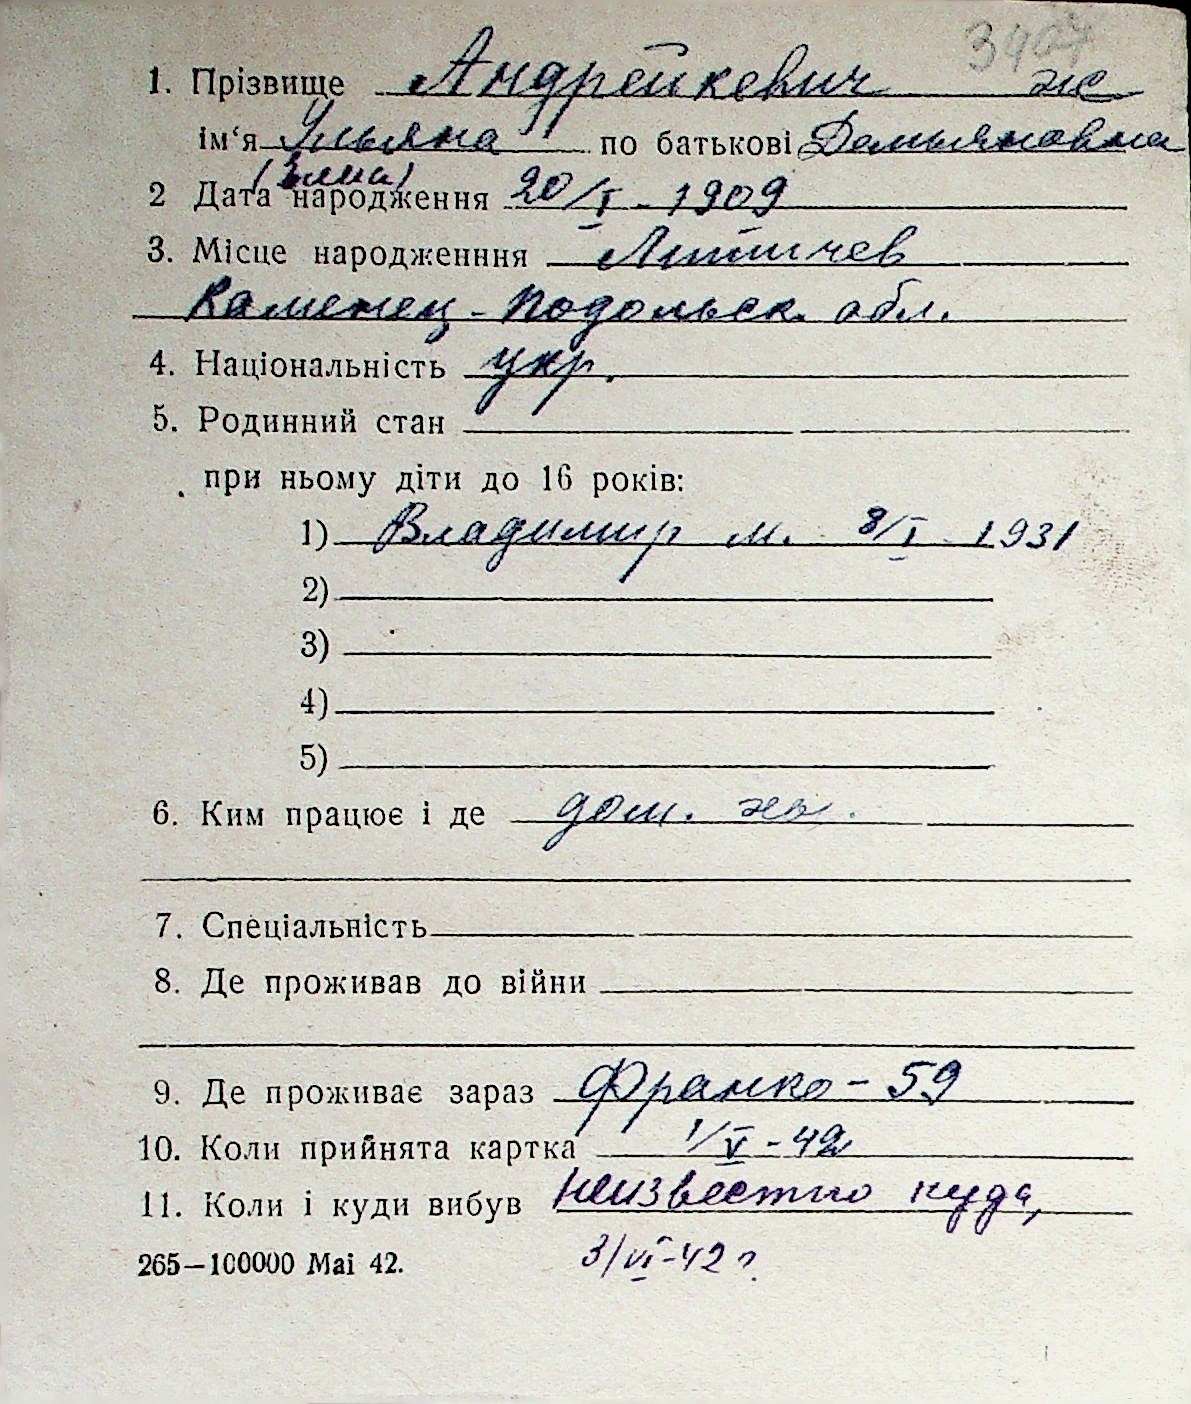 3407
1. Прізвище Андрейкевич ж
ім‘я Ульяна по батькові Демьяновна
2 Дата народження 20/I - 1909
3. Місце народженння Литичев
Каменец-Подольск. обл.
4. Національність укр.
5. Родинний стан
при ньому діти до 16 років:
1) Владимир м. 8/I 1931
2)
3)
4)
5)
6. Ким працює і де дом. хоз.
7. Спеціальність
8. Де проживав до війни
9. Де проживає зараз Франко - 59
10. Коли прийнята картка 1/V - 42
11. Коли і куди вибув неизвестно куда,
265—100000 Маі 42. 3/VI-42 г.